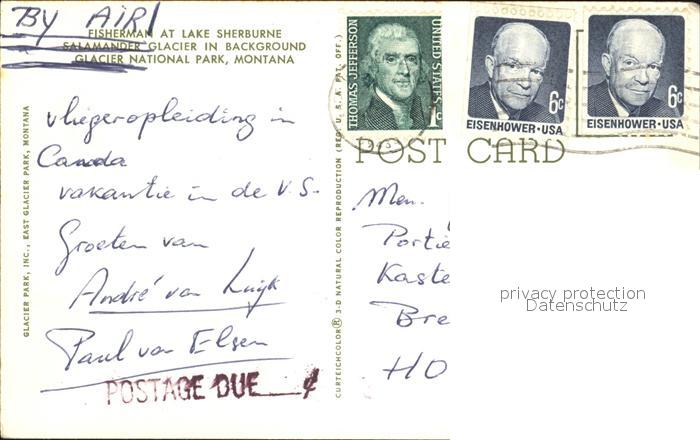 BY AIR!
FISHERMAN AT LAKE SHERBURNE
SALAMANDER GLACIER IN BACKGROUND
GLACIER NATIONAL PARK, MONTANA
vliegeropleiding in
Canada
vakantie in de V.S.
Groeten van
André van Luijk
Paul van Elsen
POSTAGE DUE ¢
GLACIER PARK, INC., EAST GLACIER PARK, MONTANA
CURTEICHCOLOR® 3-D NATURAL COLOR REPRODUCTION (REG. U. S. A. PAT. OFF.)
THOMAS JEFFERSON
UNITED STATES
1c
6c
EISENHOWER·USA
6c
EISENHOWER·USA
POST CARD
Men.
Portie
Kaste
Bre
HO
privacy protection
Datenschutz